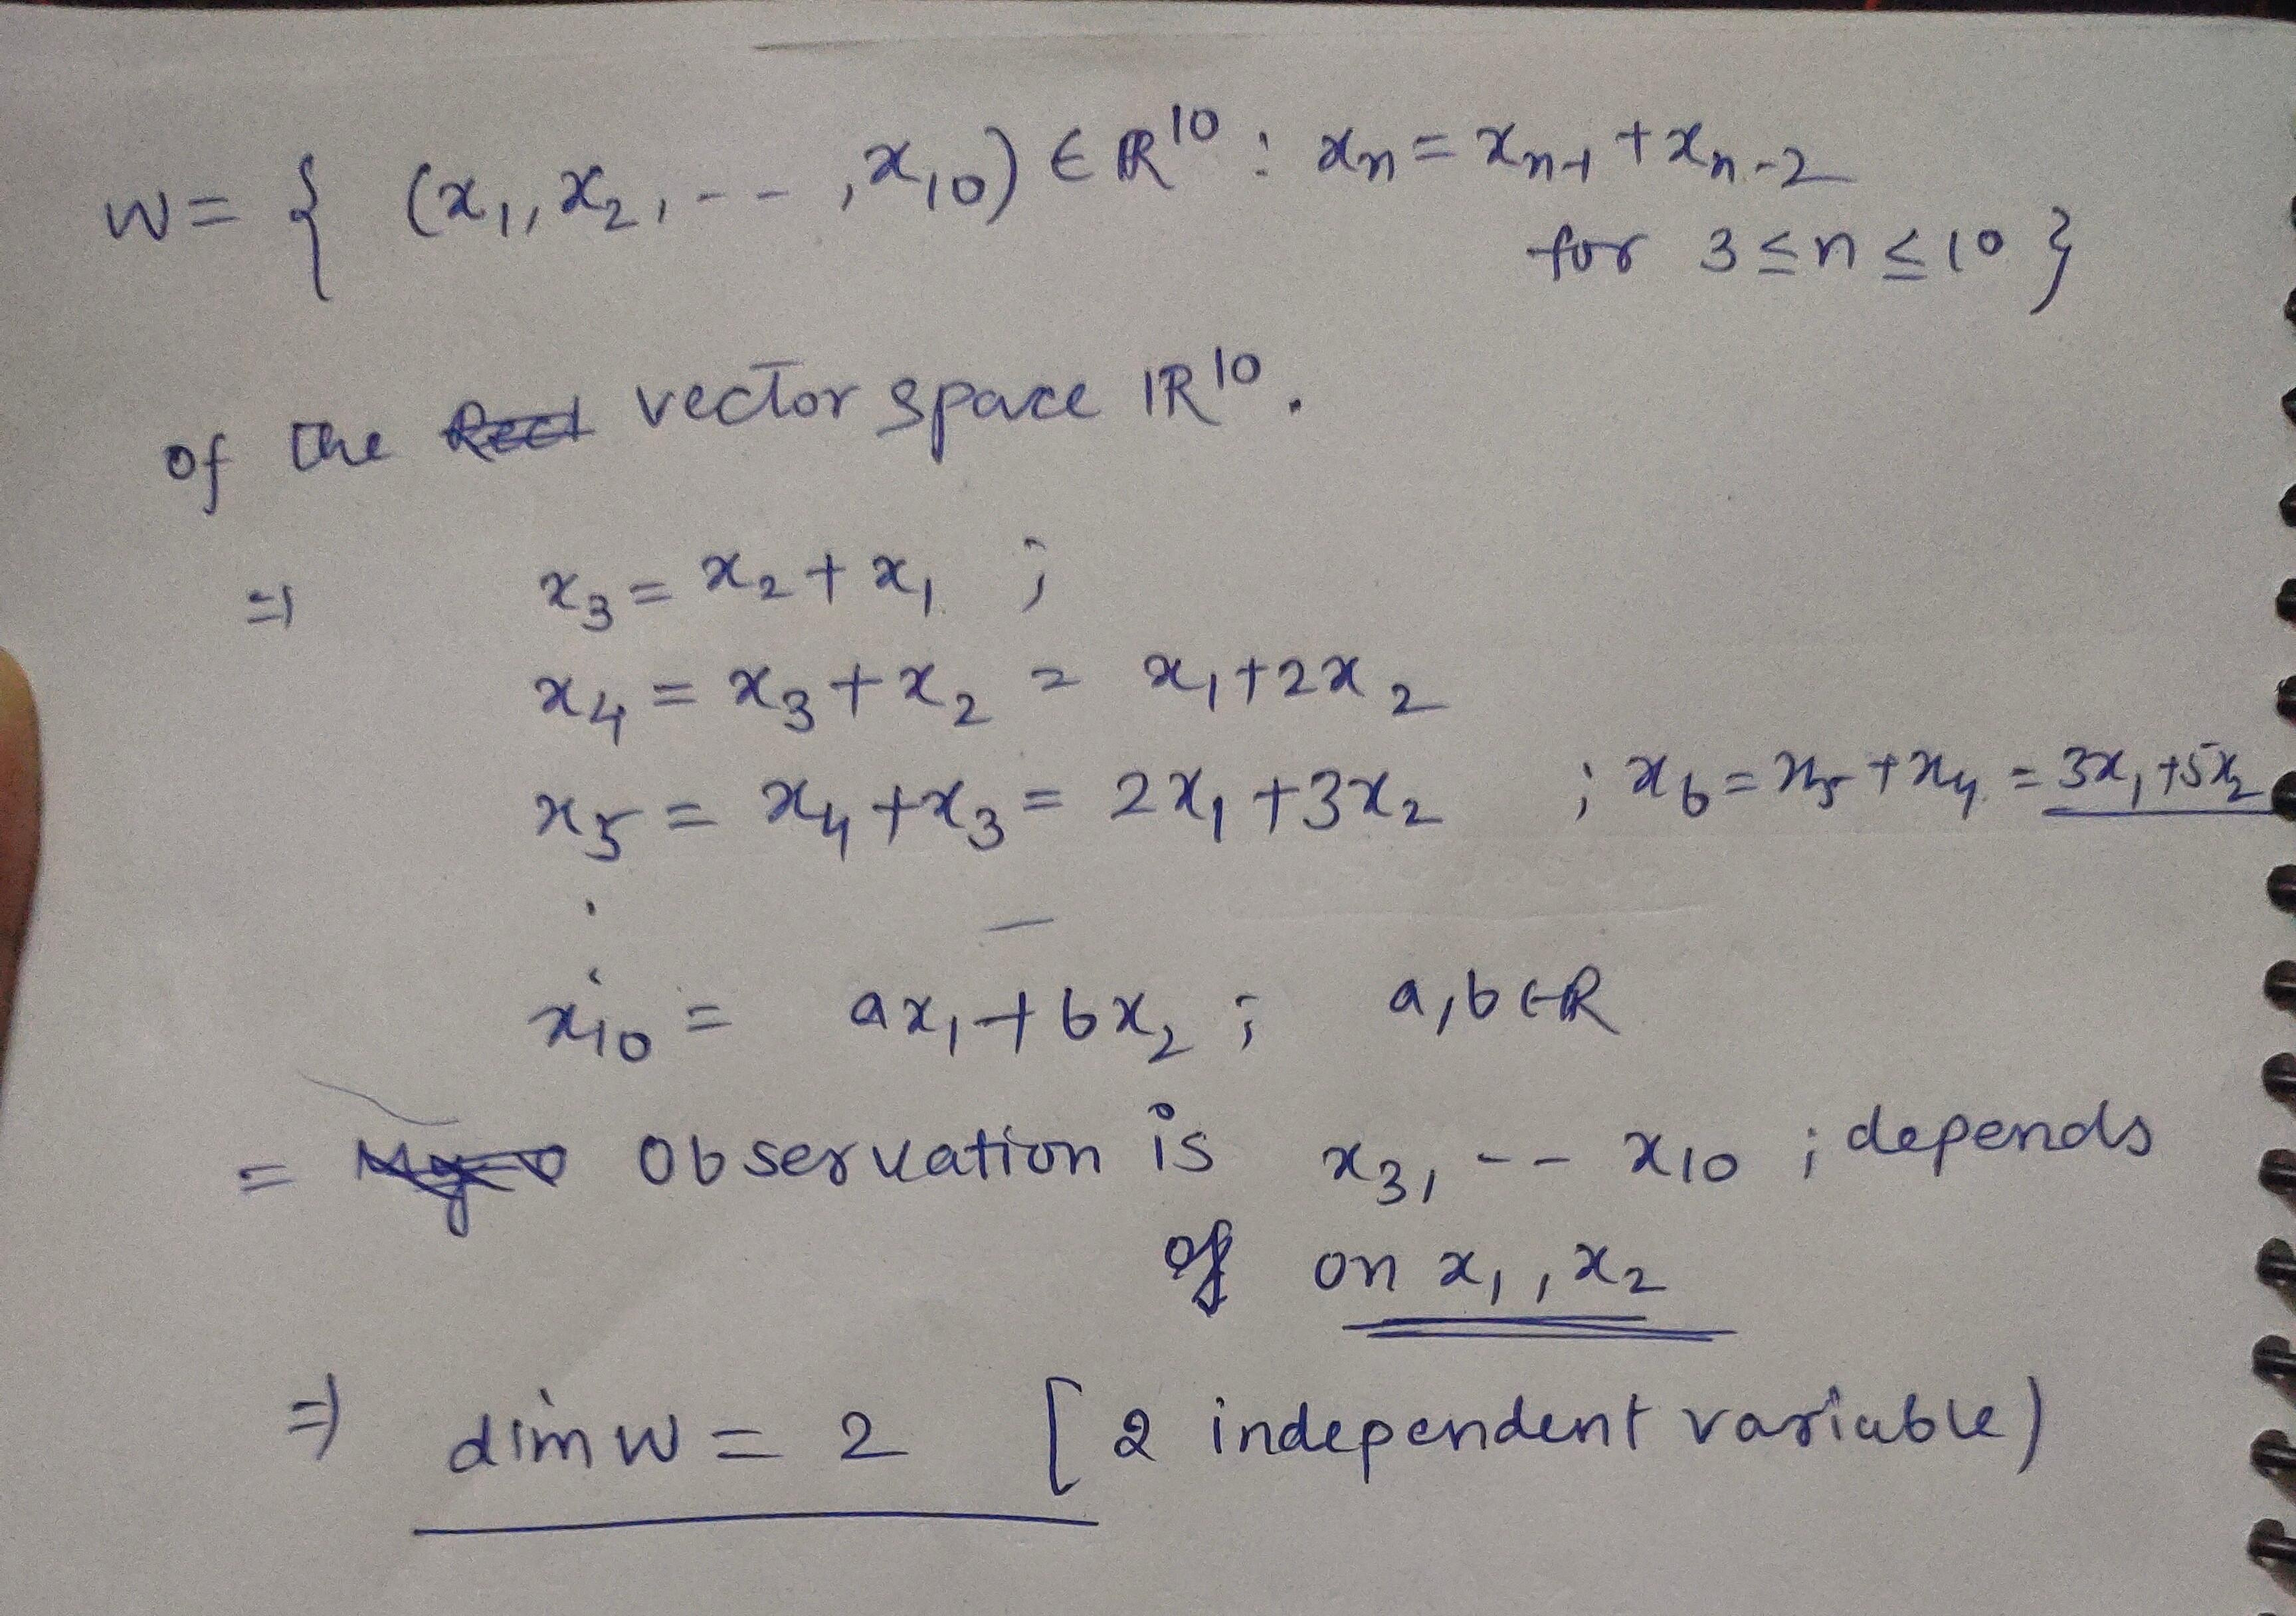 W = { (x₁, x₂, -- , x₁₀) ∈ ℝ¹⁰ : xₙ = xₙ₋₁ + xₙ₋₂
for 3 ≤ n ≤ 10 }
of the vector space ℝ¹⁰.
⇒ x₃ = x₂ + x₁ ;
x₄ = x₃ + x₂ = x₁ + 2x₂
x₅ = x₄ + x₃ = 2x₁ + 3x₂ ; x₆ = x₅ + x₄ = 3x₁ + 5x₂
x₁₀ = ax₁ + bx₂ ; a, b ∈ ℝ
= Observation is x₃, -- x₁₀ ; depends
on x₁, x₂
⇒ dim W = 2 [ 2 independent variable)